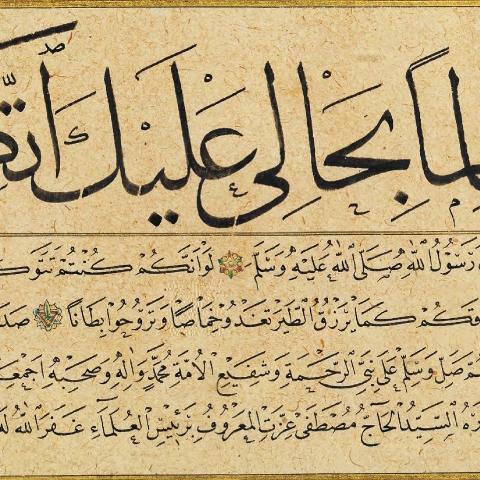 لِمًا بِحَالِي عَلَيْكَ اتَّكَ
رَسُولُ اللّٰهِ صَلَّى اللّٰهُ عَلَيْهِ وَسَلَّمَ لَوْ اَنَّكُمْ كُنْتُمْ تَتَوَكَّ
قَكُمْ كَمَا يَرْزُقُ الطَّيْرَ تَغْدُو خِمَاصًا وَتَرُوحُ بِطَانًا صَدَ
صَلِّ وَسَلِّمْ عَلَى نَبِيِّ الرَّحْمَةِ وَشَفِيعِ الْاُمَّةِ مُحَمَّدٍ وَاٰلِهِ وَصَحْبِهِ اَجْمَعِ
السَّيِّدُ الْحَاجُّ مُصْطَفٰى عِزَّتْ الْمَعْرُوفُ بِرَئِيسِ الْعُلَمَاءِ غَفَرَ اللّٰهُ لَهُ